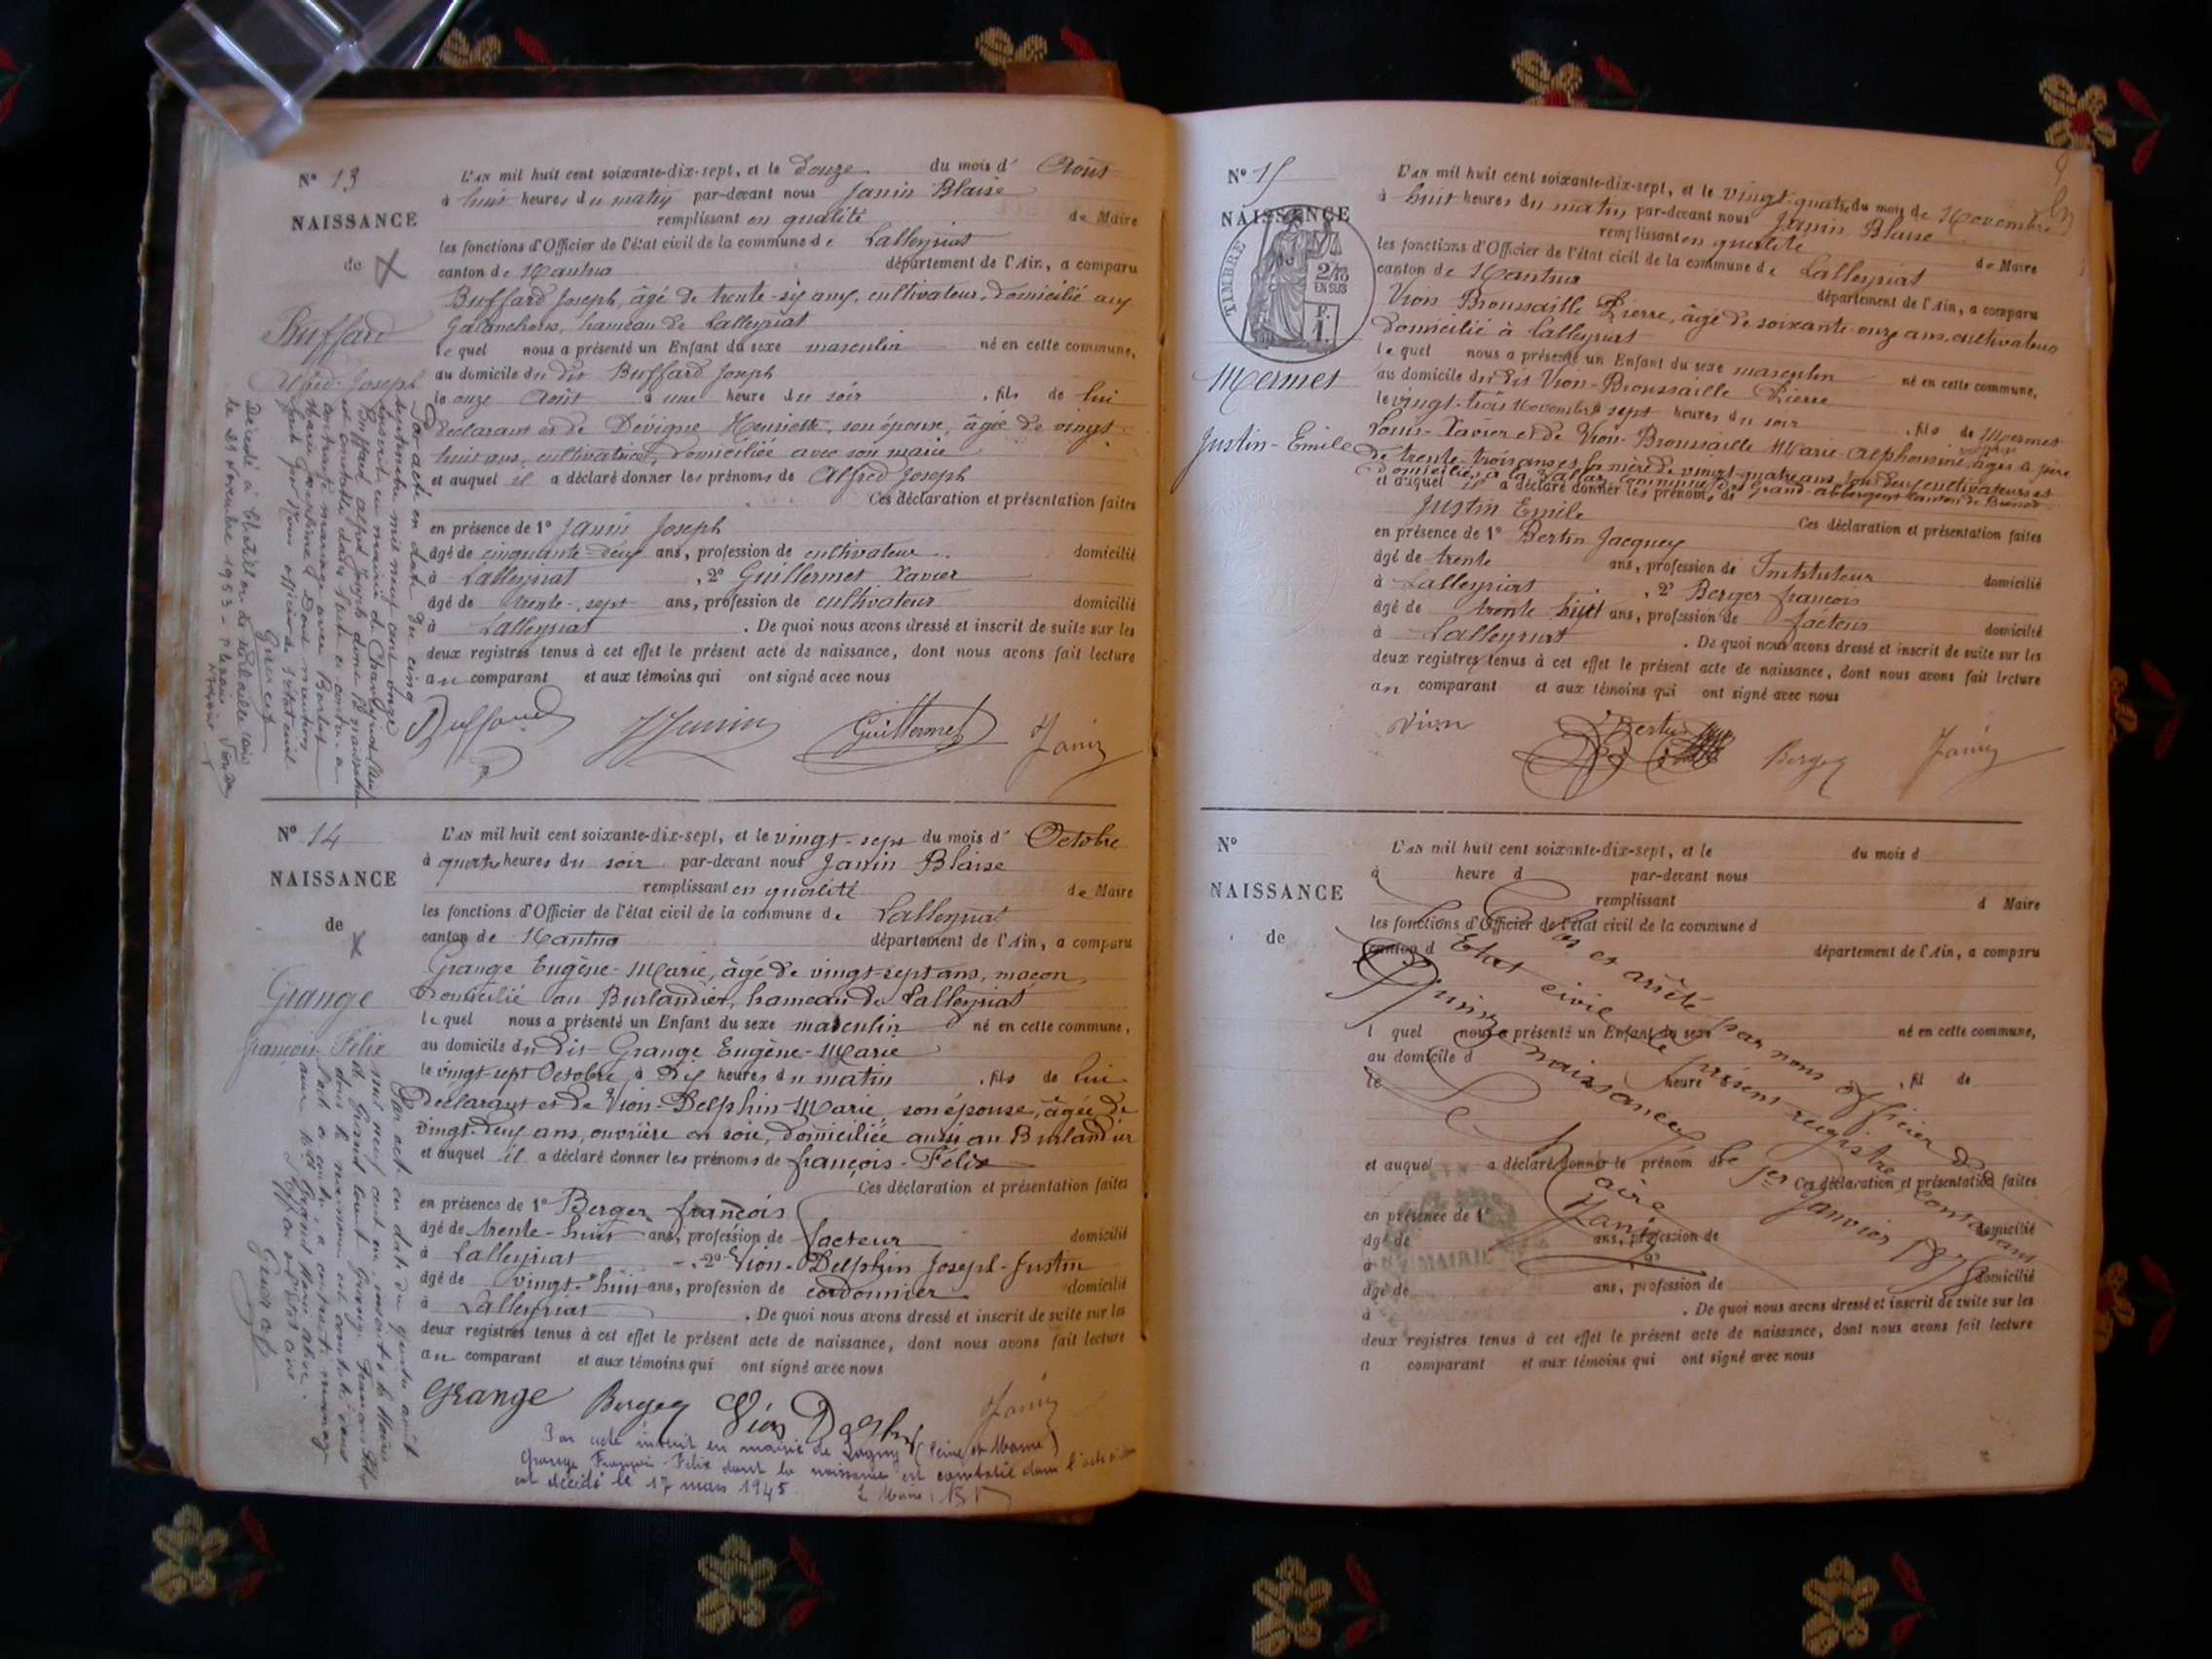 N° 13
NAISSANCE
de
Buffard
Alfred-Joseph
L'AN mil huit cent soixante-dix-sept, et le douze du mois d' Août
à huit heures du matin par-devant nous Janin Blaise
remplissant en qualité de Maire
les fonctions d'Officier de l'état civil de la commune de Lalleyriat
canton de Nantua département de l'Ain, a comparu
Buffard Joseph, âgé de trente-six ans, cultivateur, domicilié aux
Galanchons, hameau de Lalleyriat
lequel nous a présenté un Enfant du sexe masculin né en cette commune,
au domicile du dit Buffard Joseph
le onze Août à une heure du soir, fils de lui
déclarant et de Dévigne Henriette, son épouse, âgée de vingt-
huit ans, cultivatrice, domiciliée avec son marie
et auquel il a déclaré donner les prénoms de Alfred Joseph
Ces déclaration et présentation faites
en présence de 1° Janin Joseph
âgé de cinquante-deux ans, profession de cultivateur domicilié
à Lalleyriat, 2° Guillermet Xavier
âgé de trente-sept ans, profession de cultivateur domicilié
à Lalleyriat. De quoi nous avons dressé et inscrit de suite sur les
deux registres tenus à cet effet le présent acte de naissance, dont nous avons fait lecture
au comparant et aux témoins qui ont signé avec nous
Buffard JJanin Guillermet Janin
Par acte en date du cinq
septembre mil neuf cent onze
Buffard Alfred Joseph dont la naissance
est constatée dans l'acte ci-contre a
contracté mariage avec
Marie Joséphine Dont mention
faite par Nous officier de l'état civil
Décédé à Chatillon de Michaille (Ain)
le 29 Novembre 1953
N° 14
NAISSANCE
de
Grange
François-Félix
L'AN mil huit cent soixante-dix-sept, et le vingt-sept du mois d' Octobre
à quatre heures du soir par-devant nous Janin Blaise
remplissant en qualité de Maire
les fonctions d'Officier de l'état civil de la commune de Lalleyriat
canton de Nantua département de l'Ain, a comparu
Grange Eugène-Marie, âgé de vingt-sept ans, maçon
domicilié au Burlandier, hameau de Lalleyriat
lequel nous a présenté un Enfant du sexe masculin né en cette commune,
au domicile du dit Grange Eugène-Marie
le vingt-sept Octobre à dix heures du matin, fils de lui
déclarant et de Vion-Delphin Marie, son épouse, âgée de
vingt-deux ans, ouvrière en soie, domiciliée aussi au Burlandier
et auquel il a déclaré donner les prénoms de François-Félix
Ces déclaration et présentation faites
en présence de 1° Berger François
âgé de trente-huit ans, profession de facteur domicilié
à Lalleyriat, 2° Vion-Delphin Joseph-Justin
âgé de vingt-huit ans, profession de cordonnier domicilié
à Lalleyriat. De quoi nous avons dressé et inscrit de suite sur les
deux registres tenus à cet effet le présent acte de naissance, dont nous avons fait lecture
au comparant et aux témoins qui ont signé avec nous
Grange Berger Vion Delphin Janin
Par acte en date du trente août
mil neuf cent
dont la naissance est constatée dans
l'acte ci-contre, a contracté mariage
Par acte inscrit en mairie de Lagny (Seine et Marne)
Grange François-Félix dont la naissance est constatée dans l'acte ci-dessus
est décédé le 17 mars 1945. Le Maire:
N° 15
NAISSANCE
de
TIMBRE
2/10
EN SUS
F.
1.
Mermet
Justin-Emile
L'AN mil huit cent soixante-dix-sept, et le vingt-quatre du mois de Novembre
à huit heures du matin par-devant nous Janin Blaise
remplissant en qualité de Maire
les fonctions d'Officier de l'état civil de la commune de Lalleyriat
canton de Nantua département de l'Ain, a comparu
Vion Broussaille Pierre, âgé de soixante-onze ans, cultivateur
domicilié à Lalleyriat
lequel nous a présenté un Enfant du sexe masculin né en cette commune,
au domicile du dit Vion-Broussaille Pierre
le vingt-trois Novembre à sept heures du soir, fils de Mermet
Louis-Xavier et de Vion-Broussaille Marie-Alphonsine, âgés le père
de trente-trois ans et la mère de vingt-quatre ans, tous deux cultivateurs et
et auquel il a déclaré donner les prénoms de
Justin Emile
Ces déclaration et présentation faites
en présence de 1° Bertin Jacques
âgé de trente ans, profession de Instituteur domicilié
à Lalleyriat, 2° Berger François
âgé de trente huit ans, profession de facteur domicilié
à Lalleyriat. De quoi nous avons dressé et inscrit de suite sur les
deux registres tenus à cet effet le présent acte de naissance, dont nous avons fait lecture
au comparant et aux témoins qui ont signé avec nous
Vion Bertin Berger Janin
N°
NAISSANCE
de
L'AN mil huit cent soixante-dix-sept, et le du mois d
à heure d par-devant nous
remplissant d Maire
les fonctions d'Officier de l'état civil de la commune d
canton d département de l'Ain, a comparu
l quel nous a présenté un Enfant du sexe né en cette commune,
au domicile d
le heure , fil de
et auquel a déclaré donner le prénom de
Ces déclaration et présentation faites
en présence de 1°
âgé de ans, profession de domicilié
à , 2°
âgé de ans, profession de domicilié
à . De quoi nous avons dressé et inscrit de suite sur les
deux registres tenus à cet effet le présent acte de naissance, dont nous avons fait lecture
a comparant et aux témoins qui ont signé avec nous
Clos et arrêté par nous officier de
Etat civil le présent registre contenant
Quinze naissances, le 1er Janvier 1878
Le Maire
Janin
MAIRIE